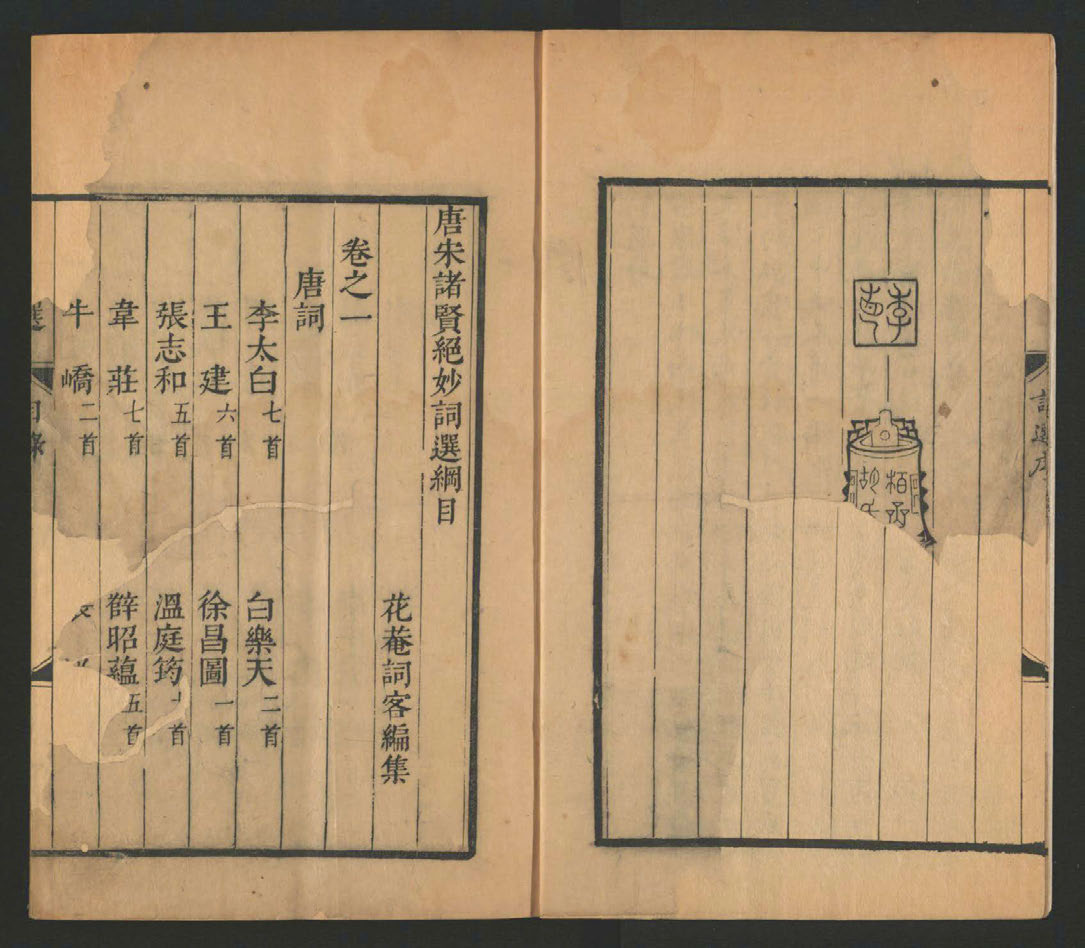 詞選序
李
栢
胡氏
唐朱諸賢絕妙詞選綱目
花菴詞客編集
卷之一
唐詞
李太白七首 白樂天二首
王建六首 徐昌圖一首
張志和五首 溫庭筠十首
韋莊七首 薛昭蘊五首
牛嶠二首
選 目錄